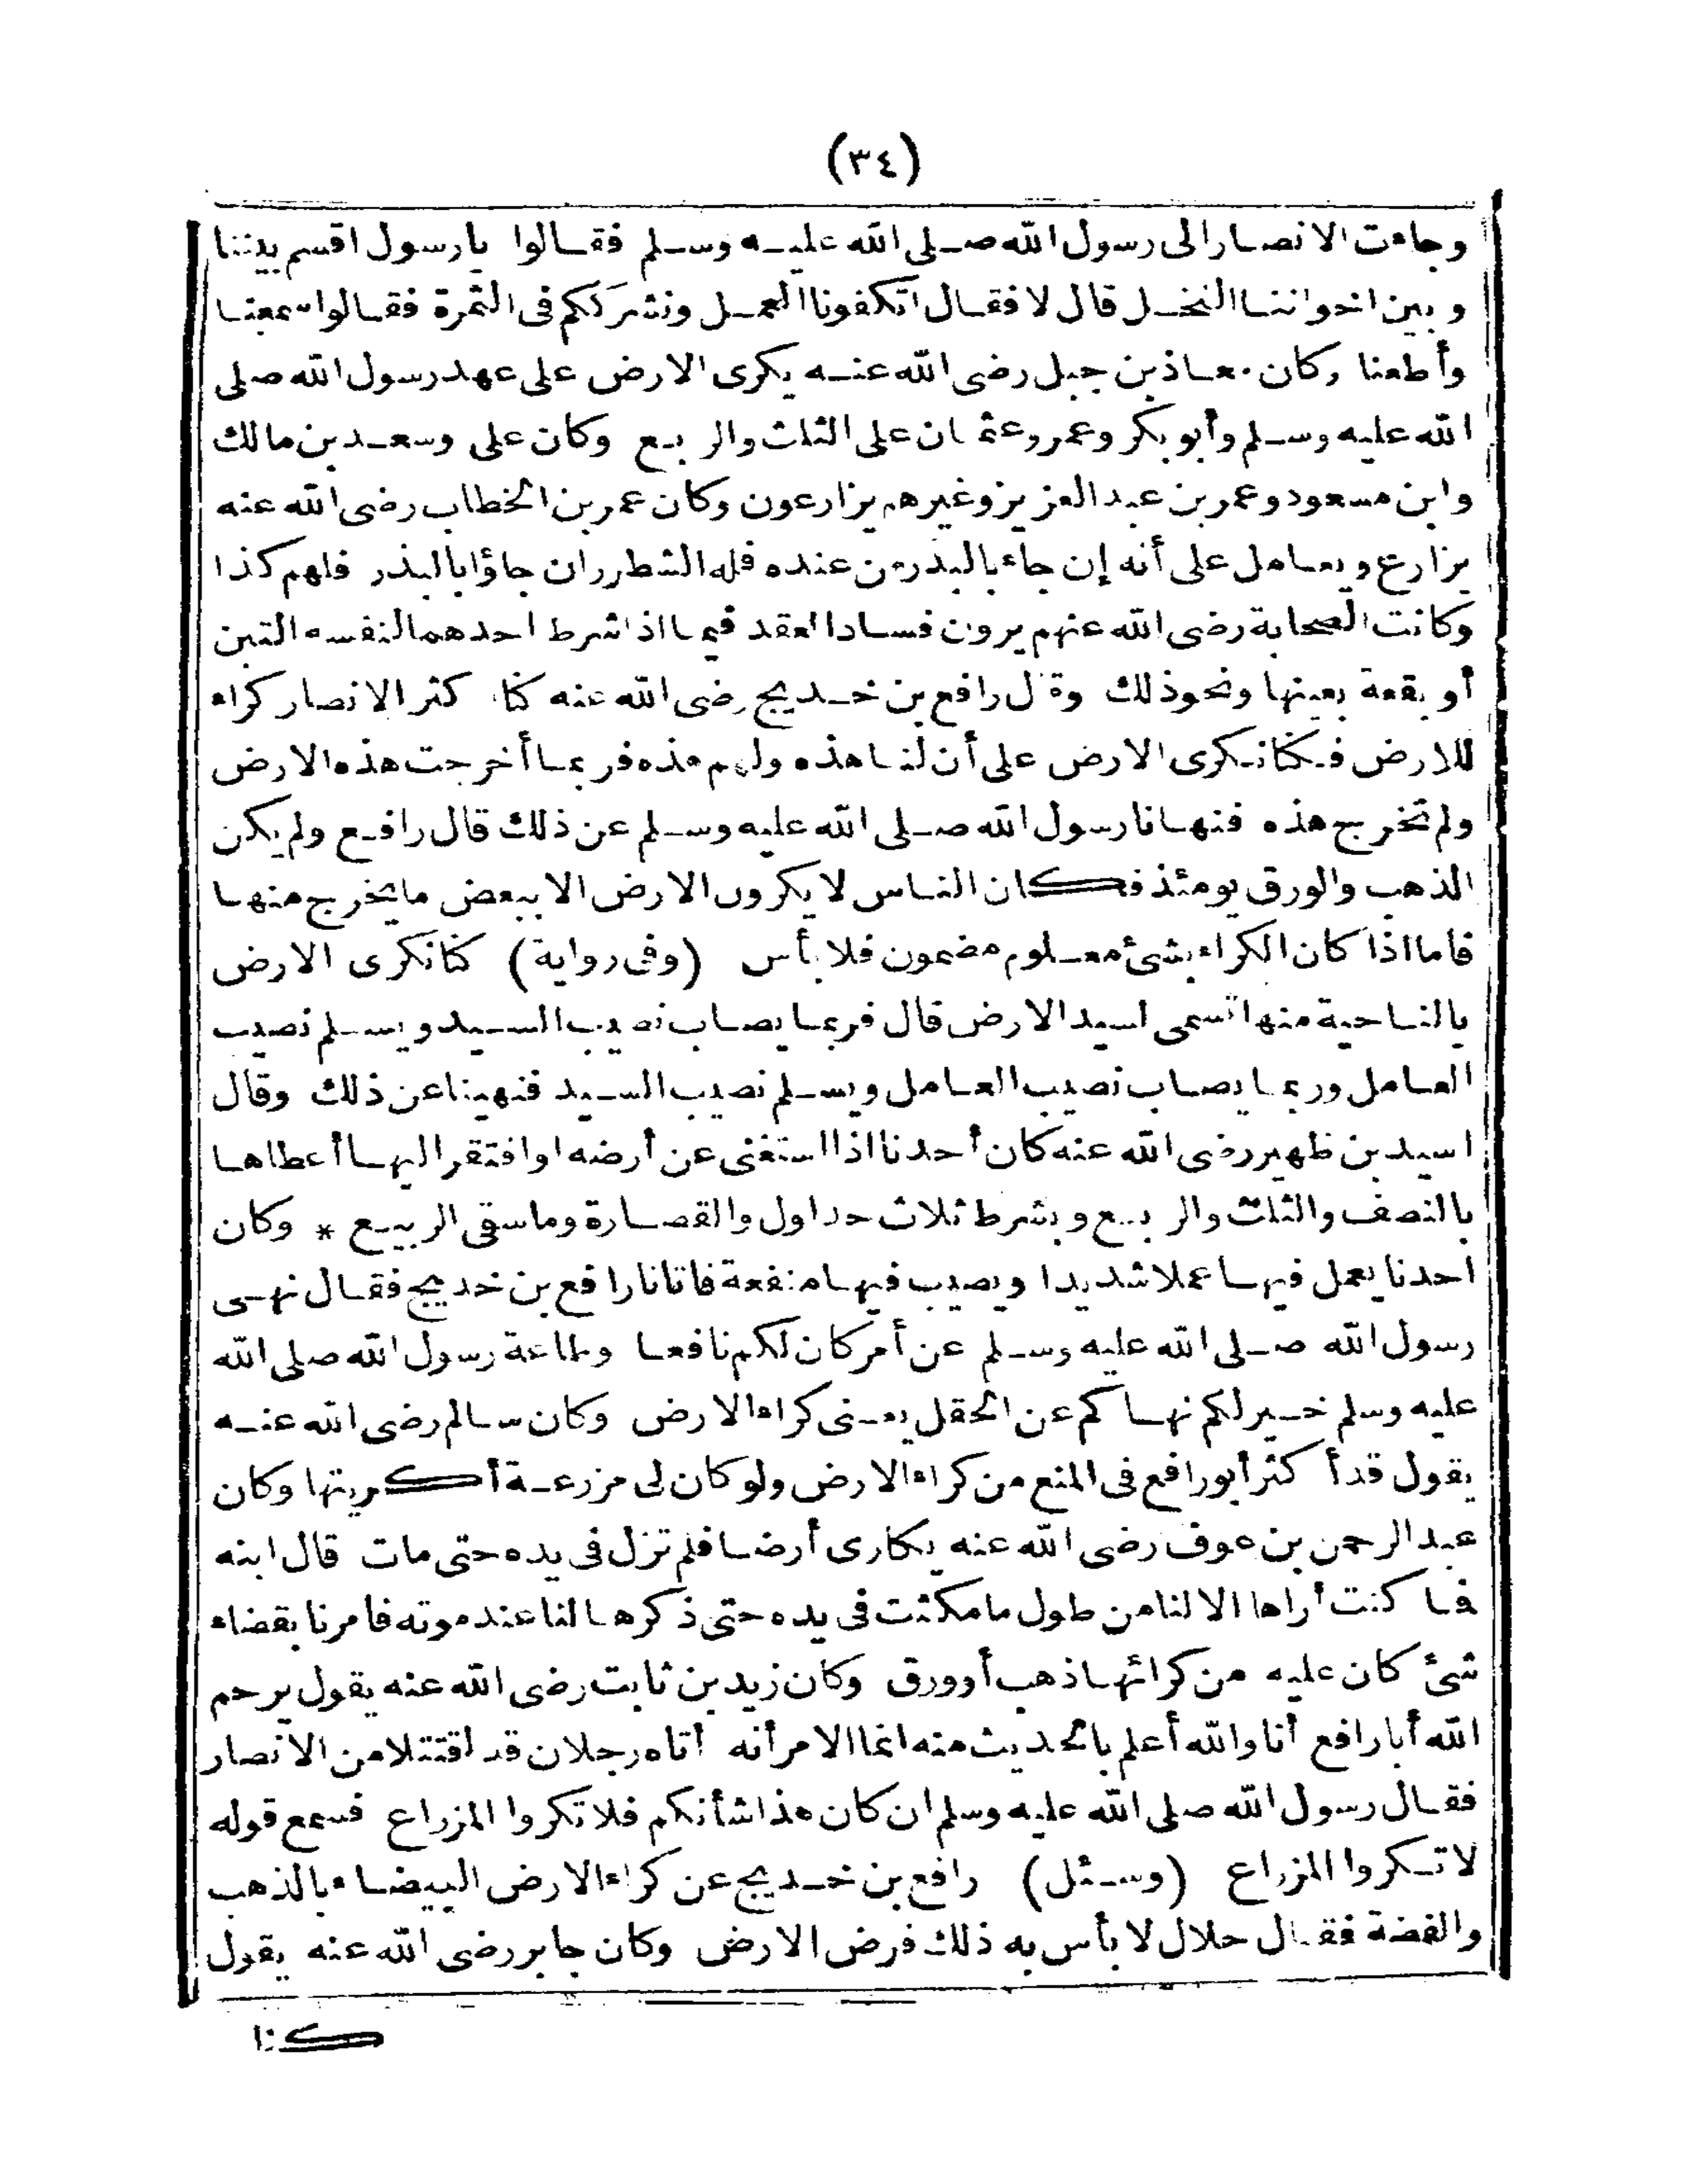 (٣٤)
وجاءت الانصار الى رسول الله صلى الله عليه وسلم فقالوا يا رسول اقسم بيننا
وبين اخواننا النخل قال لا فقال اتكفونا العمل ونشرككم فى الثمرة فقالوا سمعنا
وأطعنا وكان معاذ بن جبل رضى الله عنه يكرى الارض على عهد رسول الله صلى
الله عليه وسلم وأبو بكر وعمر وعثمان على الثلث والربع وكان على وسعد بن مالك
وابن مسعود وعمر بن عبد العزيز وغيرهم يزارعون وكان عمر بن الخطاب رضى الله عنه
يزارع ويعامل على أنه إن جاء بالبذر من عنده فله الشطر وان جاؤا بالبذر فلهم كذا
وكانت الصحابة رضى الله عنهم يرون فساد العقد فيما اذا شرط احدهما لنفسه التبن
أو بقعة بعينها ونحو ذلك وقال رافع بن خديج رضى الله عنه كنا كثر الانصار كراء
للارض فكنا نكرى الارض على أن لنا هذه ولهم هذه فربما أخرجت هذه الارض
ولم تخرج هذه فنهانا رسول الله صلى الله عليه وسلم عن ذلك قال رافع ولم يكن
الذهب والورق يومئذ فكان الناس لا يكرون الارض الا ببعض ما يخرج منها
فاما اذا كان الكراء بشئ معلوم مضمون فلا بأس (وفى رواية) كنا نكرى الارض
بالناحية منها تسمى لسيد الارض قال فربما يصاب نصيب السيد ويسلم نصيب
العامل وربما يصاب نصيب العامل ويسلم نصيب السيد فنهينا عن ذلك وقال
اسيد بن ظهير رضى الله عنه كان أحدنا اذا استغنى عن أرضه او افتقر اليها أعطاها
بالنصف والثلث والربع وبشرط ثلاث جداول والقصارة وما سقى الربيع * وكان
احدنا يعمل فيها عملا شديدا ويصيب فيها منفعة فاتانا رافع بن خديج فقال نهى
رسول الله صلى الله عليه وسلم عن أمر كان لكم نافعا وطاعة رسول الله صلى الله
عليه وسلم خير لكم نهاكم عن الحقل يعنى كراء الارض وكان سالم رضى الله عنه
يقول قد أكثر أبو رافع فى المنع من كراء الارض ولو كان لى مزرعة أكريتها وكان
عبد الرحمن بن عوف رضى الله عنه يكارى أرضا فلم تزل فى يده حتى مات قال ابنه
فما كنت أراها الا لنا من طول ما مكثت فى يده حتى ذكرها لنا عند موته فامرنا بقضاء
شئ كان عليه من كرائها ذهب أو ورق وكان زيد بن ثابت رضى الله عنه يقول يرحم
الله أبا رافع أنا والله أعلم بالحديث منه انما الامر أنه أتاه رجلان قد اقتتلا من الانصار
فقال رسول الله صلى الله عليه وسلم ان كان هذا شأنكم فلا تكروا المزراع فسمع قوله
لا تكروا المزراع (وسئل) رافع بن خديج عن كراء الارض البيضاء بالذهب
والفضة فقال حلال لا بأس به ذلك فرض الارض وكان جابر رضى الله عنه يقول
كنا